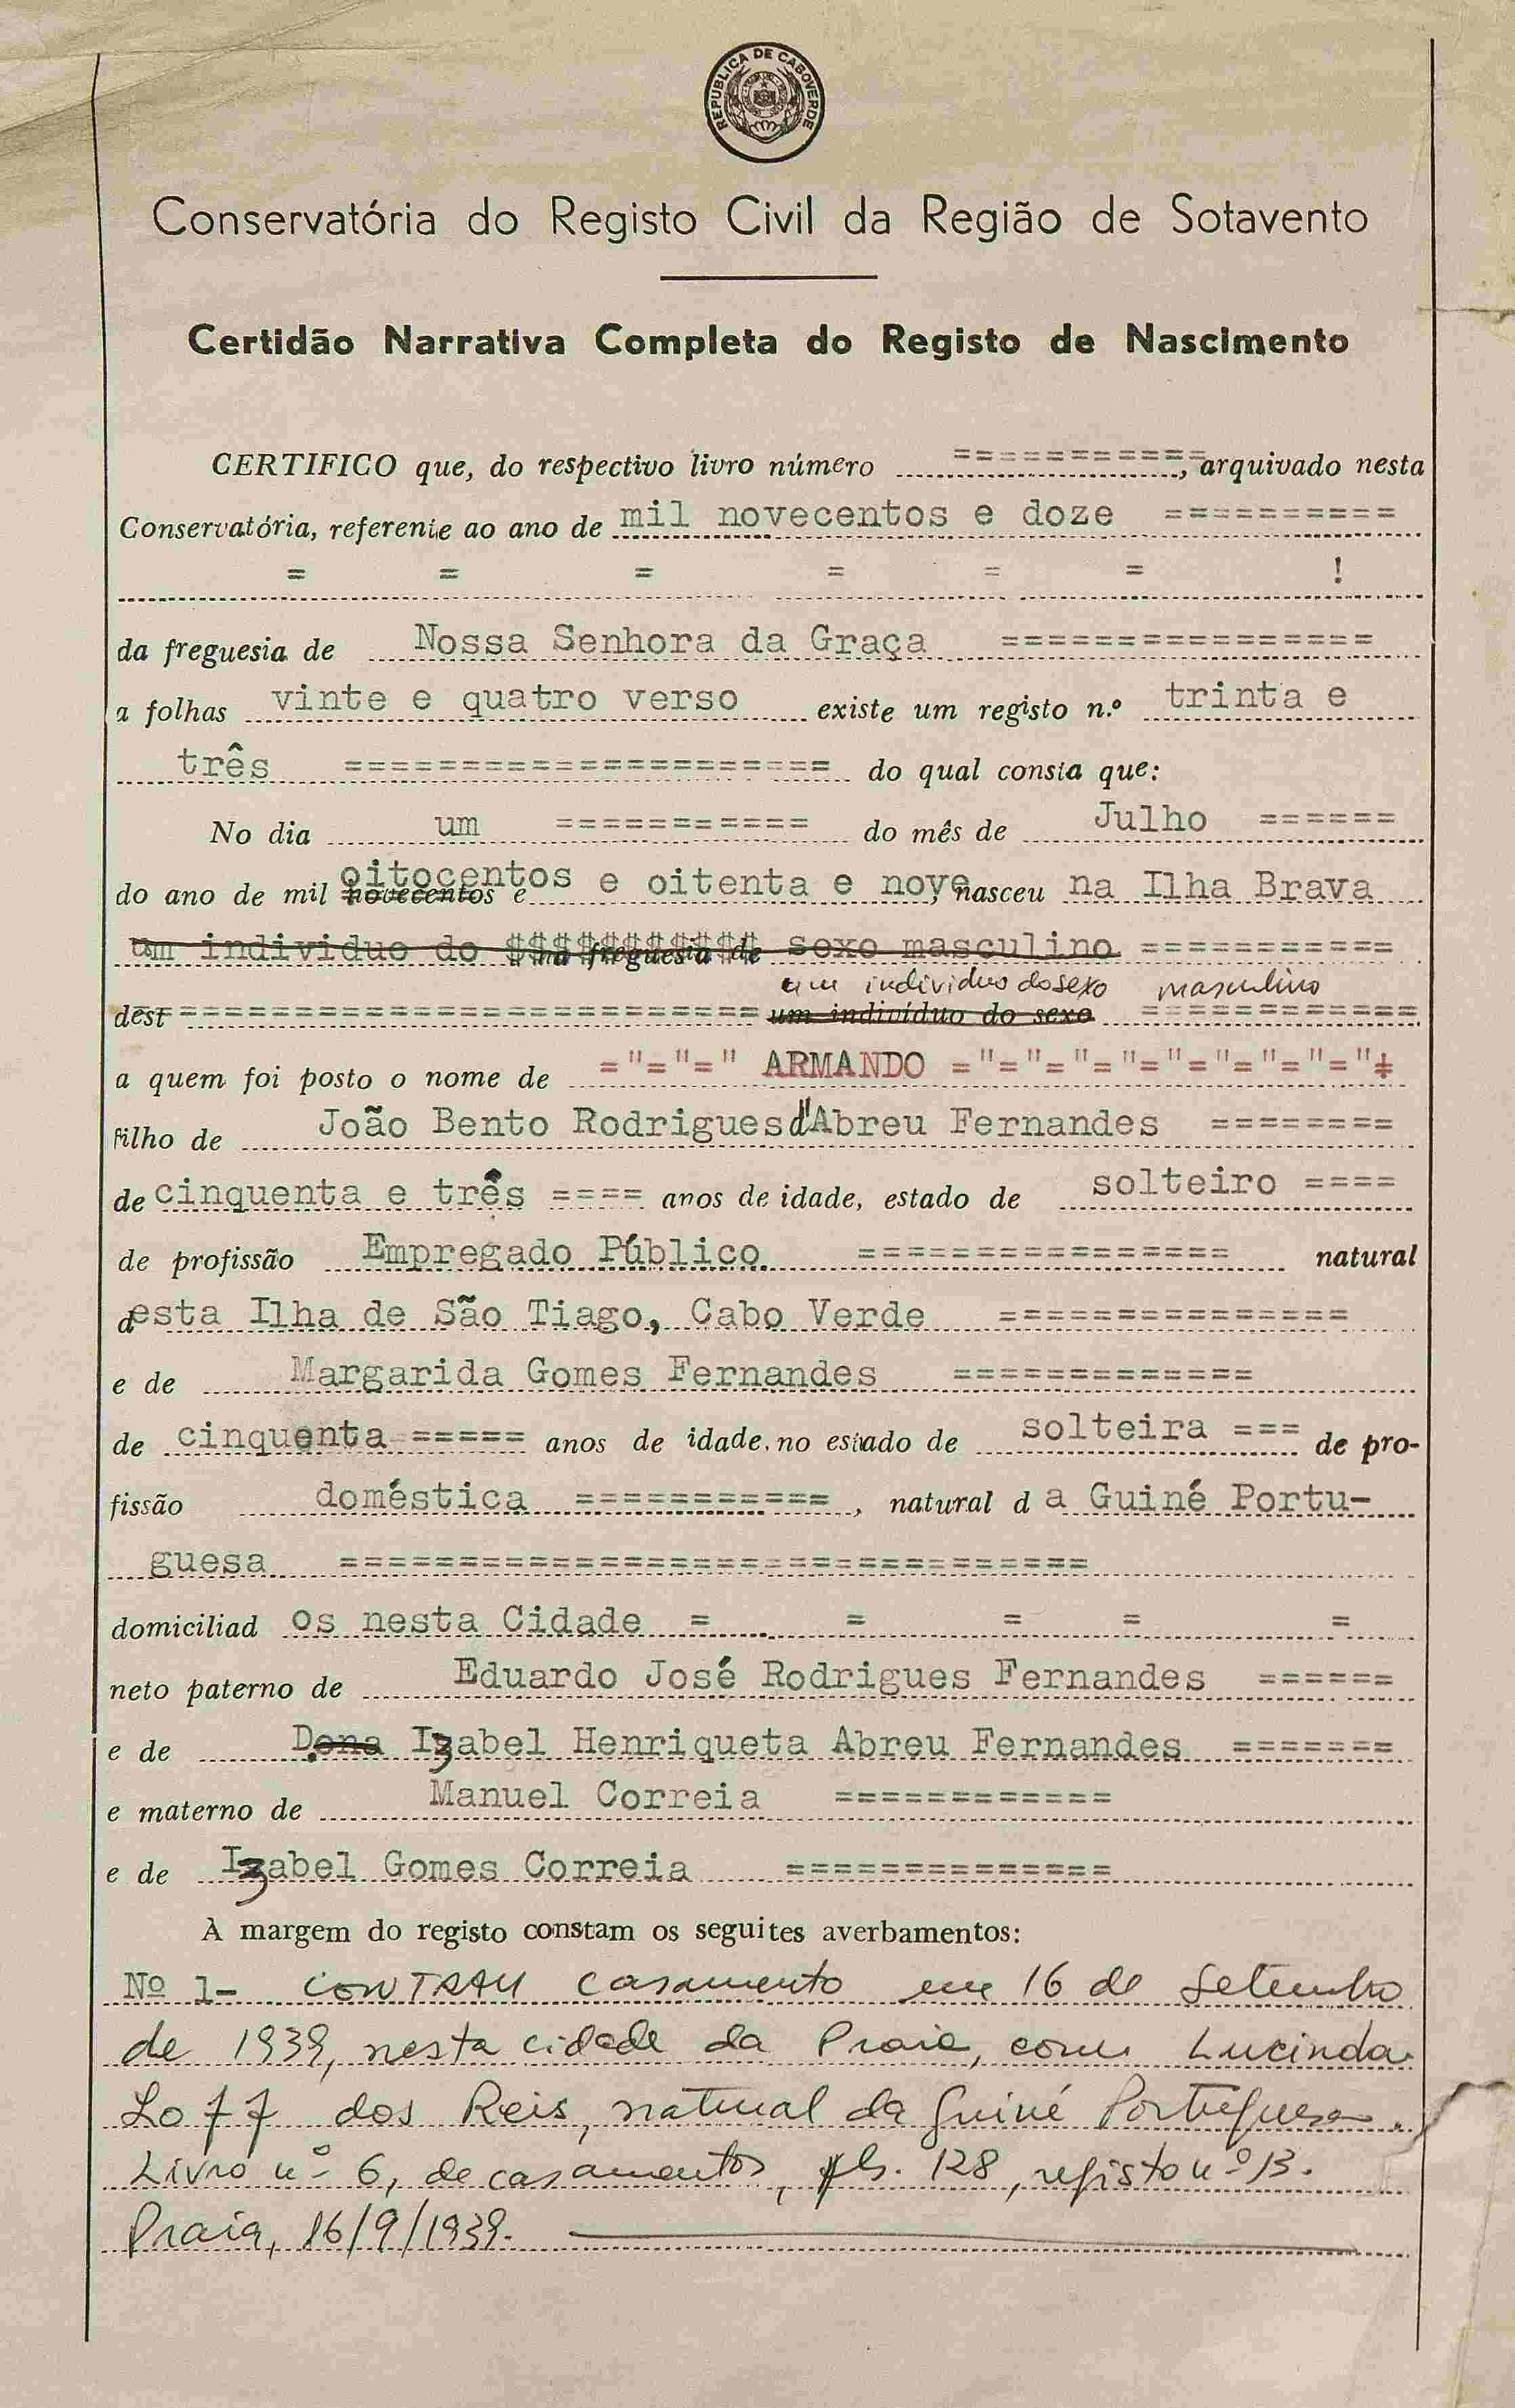 REPUBLICA DE CABO VERDE
Conservatória do Registo Civil da Região de Sotavento
Certidão Narrativa Completa do Registo de Nascimento
CERTIFICO que, do respectivo livro número ===========, arquivado nesta
Conservatória, referente ao ano de mil novecentos e doze ==========
= = = = = = !
da freguesia de Nossa Senhora da Graça ================
a folhas vinte e quatro verso existe um registo n.º trinta e
três ===================== do qual consta que:
No dia um =========== do mês de Julho ======
do ano de mil novecentos e oitocentos e oitenta e nove, nasceu na Ilha Brava
um individuo do $$$$$$$$$$$ na freguesia de sexo masculino ===========
um individuo do sexo masculino
dest ========================= um indivíduo do sexo ============
a quem foi posto o nome de ="="=" ARMANDO ="="="="="="="="="=
filho de João Bento Rodrigues d'Abreu Fernandes ========
de cinquenta e três ==== anos de idade, estado de solteiro ====
de profissão Empregado Público ================ natural
desta Ilha de São Tiago, Cabo Verde ===============
e de Margarida Gomes Fernandes =============
de cinquenta ===== anos de idade, no estado de solteira === de pro-
fissão doméstica ===========, natural d a Guiné Portu-
guesa ================================
domiciliad os nesta Cidade = = = = =
neto paterno de Eduardo José Rodrigues Fernandes ======
e de Dona Izabel Henriqueta Abreu Fernandes =======
e materno de Manuel Correia ============
e de Izabel Gomes Correia ==============
À margem do registo constam os seguites averbamentos:
Nº 1- CONTRAIU casamento em 16 de Setembro
de 1939, nesta cidade da Praia, com Lucinda
Loff dos Reis, natural da Guiné Portuguesa.
Livro nº 6, de casamentos, fls. 128, registo nº 13.
Praia, 16/9/1939.